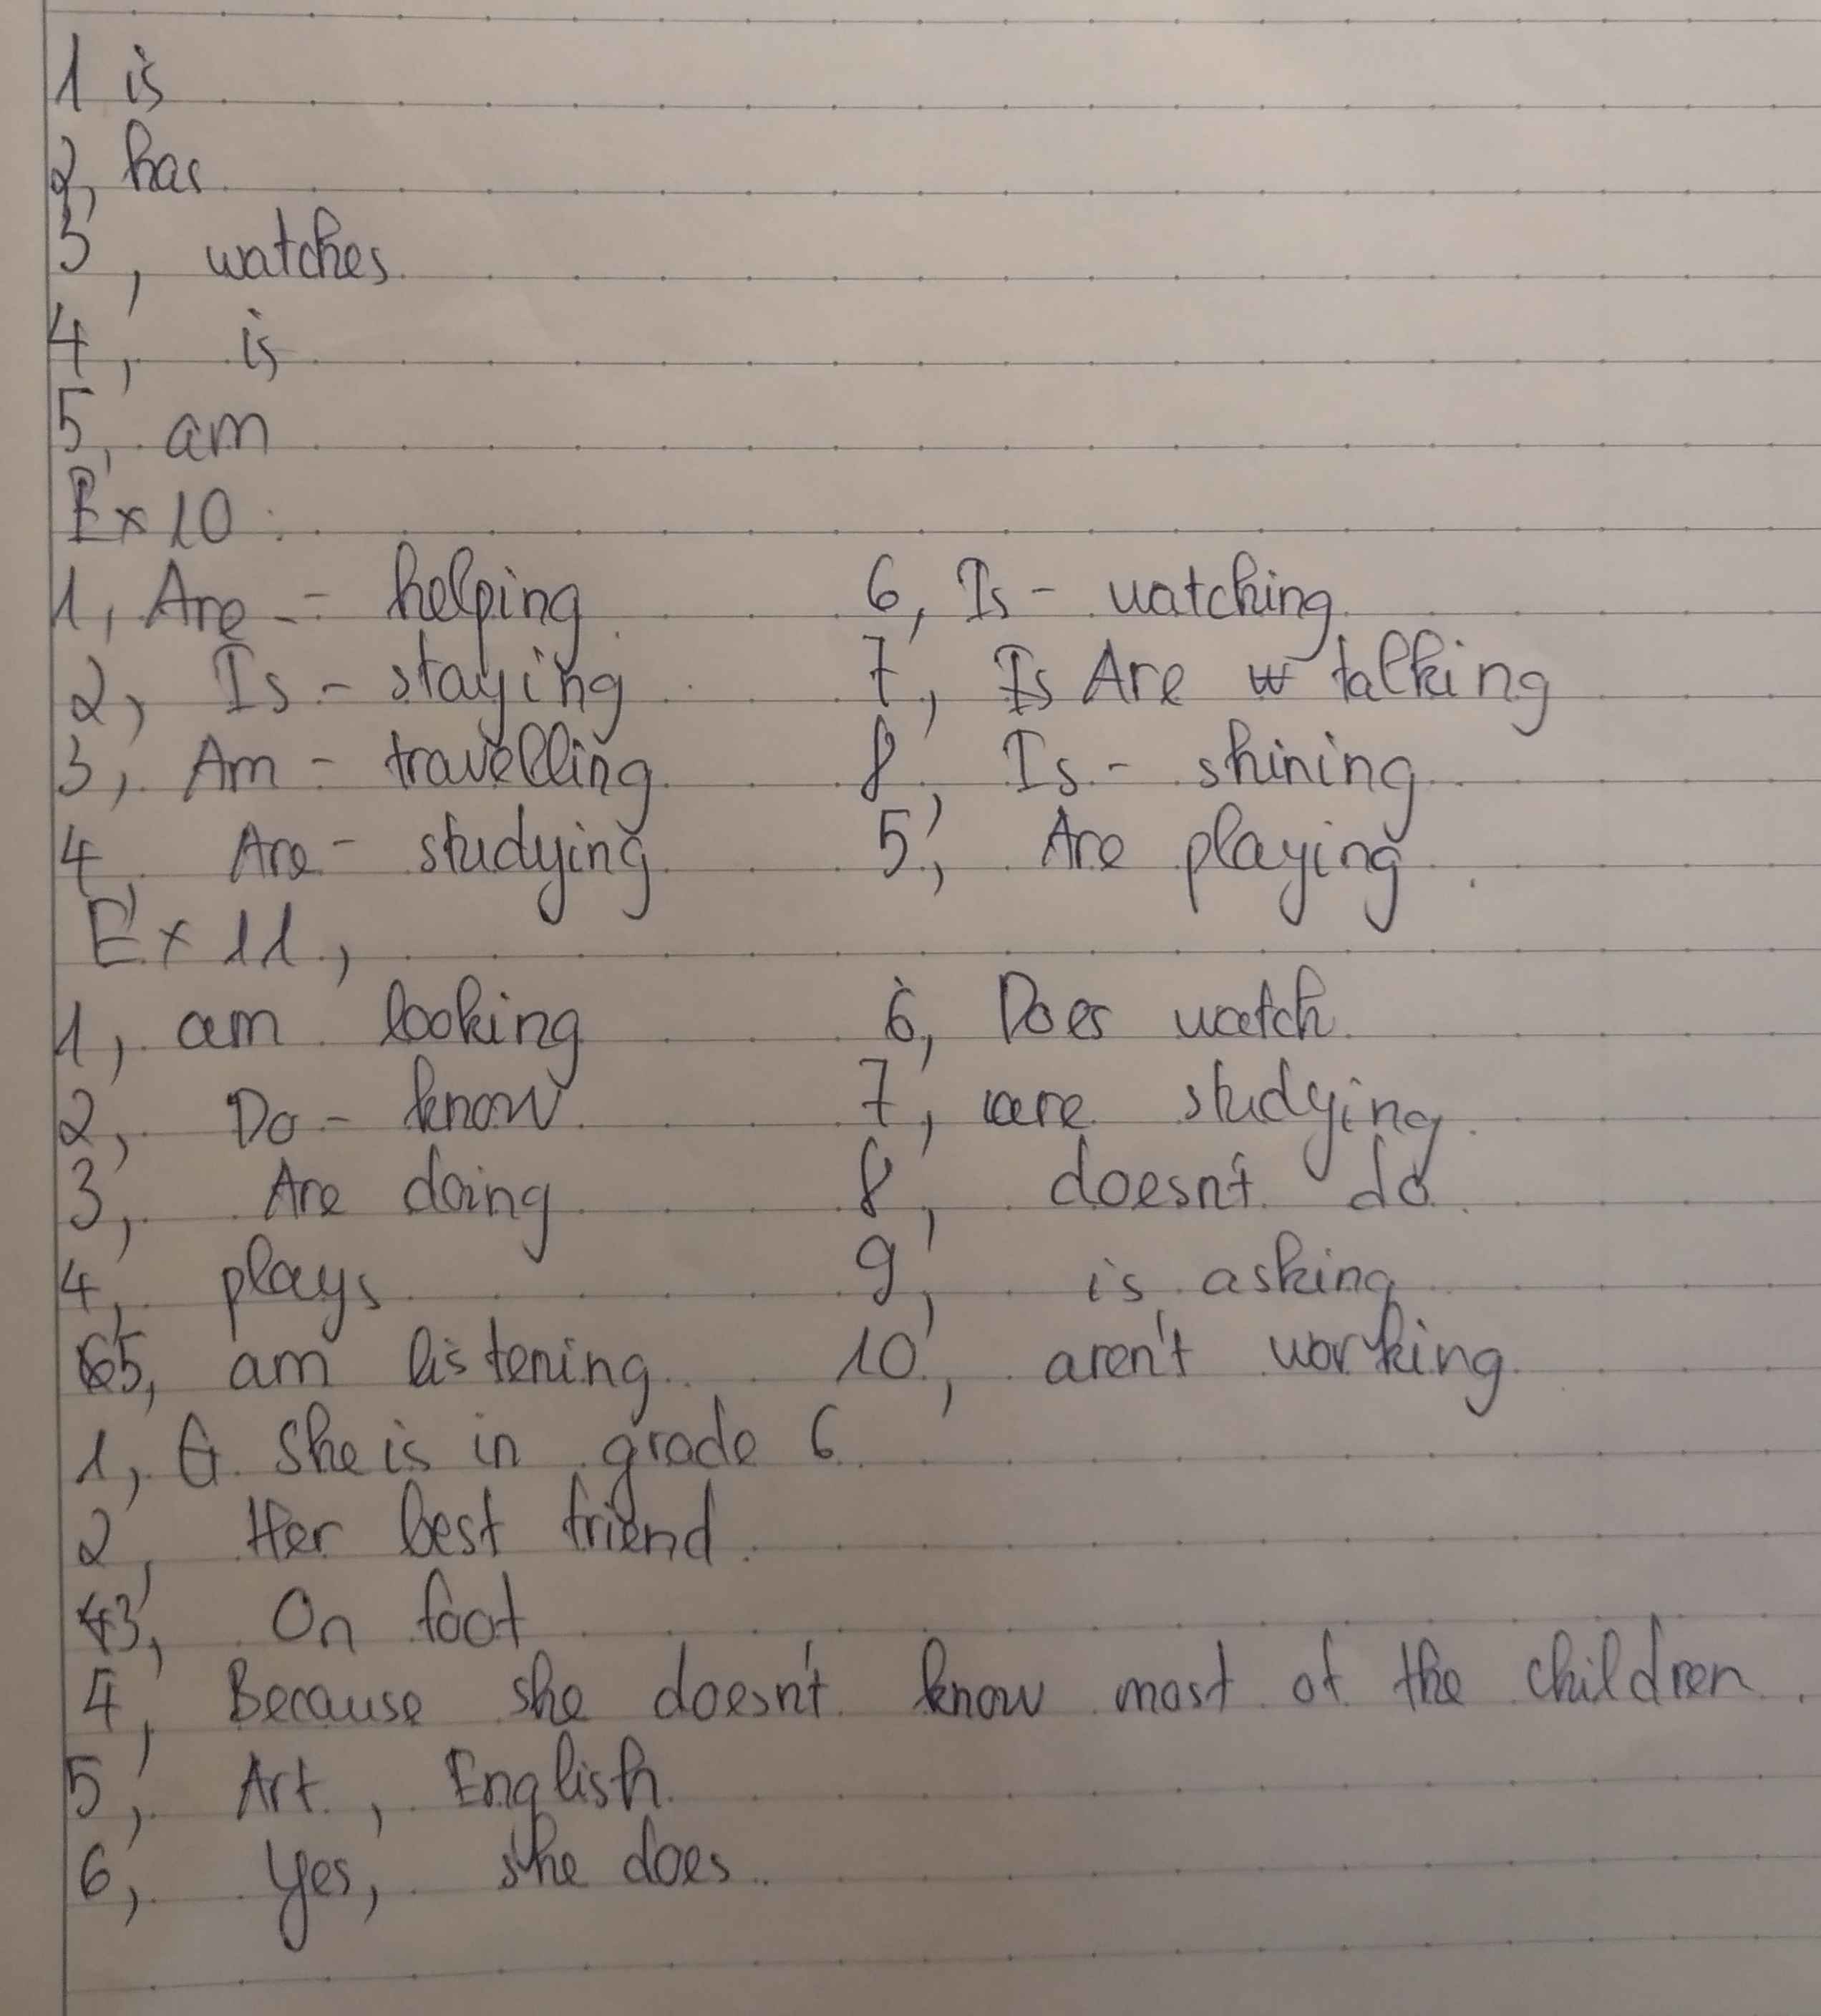 1 is
2, has
3, watches
4, is
5, am
Ex 10:
1, Are - helping
2, Is - staying
3, Am - travelling
4, Are - studying
6, Is - watching
7, Is Are w talking
8, Is - shining
5, Are playing.
Ex 11,
1, am looking
2, Do - know
3, Are doing
4, plays
65, am listening
6, Does watch
7, are studying
8, doesn't do
9, is asking
10, aren't working
1, G She is in grade 6
2, Her best friend
43, On foot
4, Because she doesn't know most of the children.
5, Art, English
6, Yes, she does.